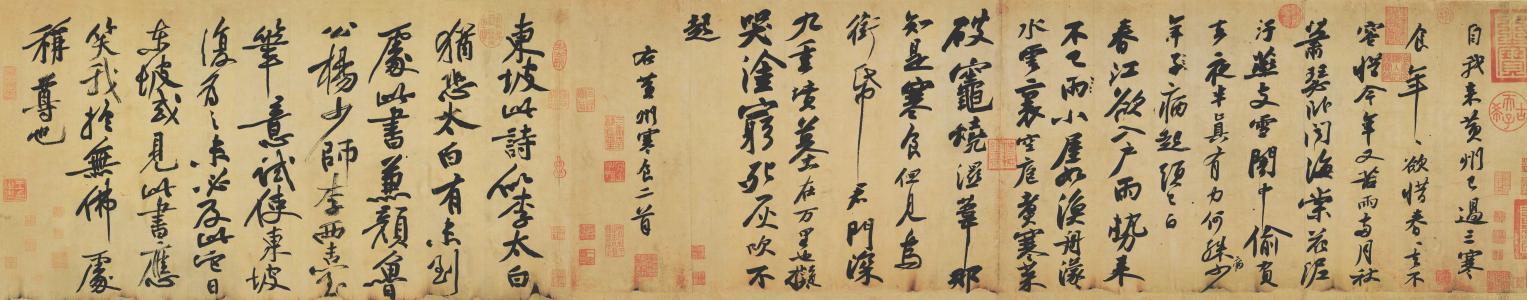 自我来黄州已過三寒
食年〻欲惜春〻去不
容惜今年又苦雨兩月秋
蕭瑟卧聞海棠花泥
汙燕支雪闇中偷負
去夜半真有力何殊病少
年子病起頭已白
春江欲入户雨勢来
不已雨小屋如漁舟濛〻
水雲裏空庖煑寒菜
破竈燒濕葦那
知是寒食但見烏
銜帋君門深
九重墳墓在万里也擬
哭塗窮死灰吹不
起
右黄州寒食二首
東坡此詩似李太白
猶恐太白有未到
處此書兼顏魯
公楊少師李西臺
筆意試使東坡
復為之未必及此它日
東坡或見此書應
笑我於無佛處
稱尊也